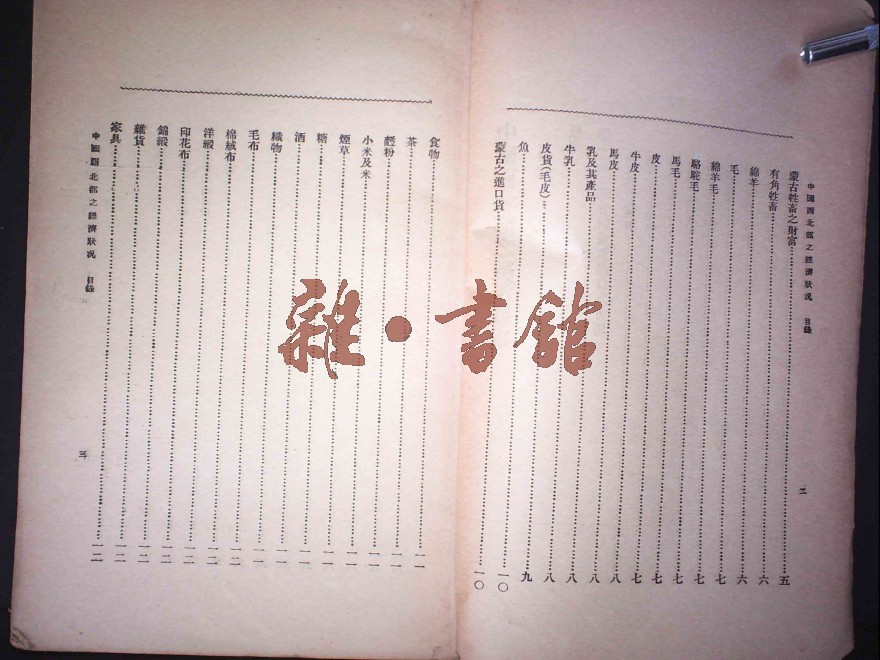 中國西北部之經濟狀況 目錄 二
蒙古牲畜之財富……五
有角牲畜……六
綿羊……六
毛……七
綿羊毛……七
駱駝毛……七
馬毛……七
皮……七
牛皮……八
馬皮……八
乳及其產品……八
牛乳……八
皮貨(毛皮)……九
魚……一〇
蒙古之進口貨……一〇
食物……一一
茶……一一
麵粉……一一
小米及米……一一
煙草……一一
糖……一一
酒……一一
織物……一一
毛布……一二
棉絨布……一二
洋緞……一二
印花布……一二
錦緞……一二
雜貨……一二
家具……一二
中國西北部之經濟狀況 目錄 三
雜·書館